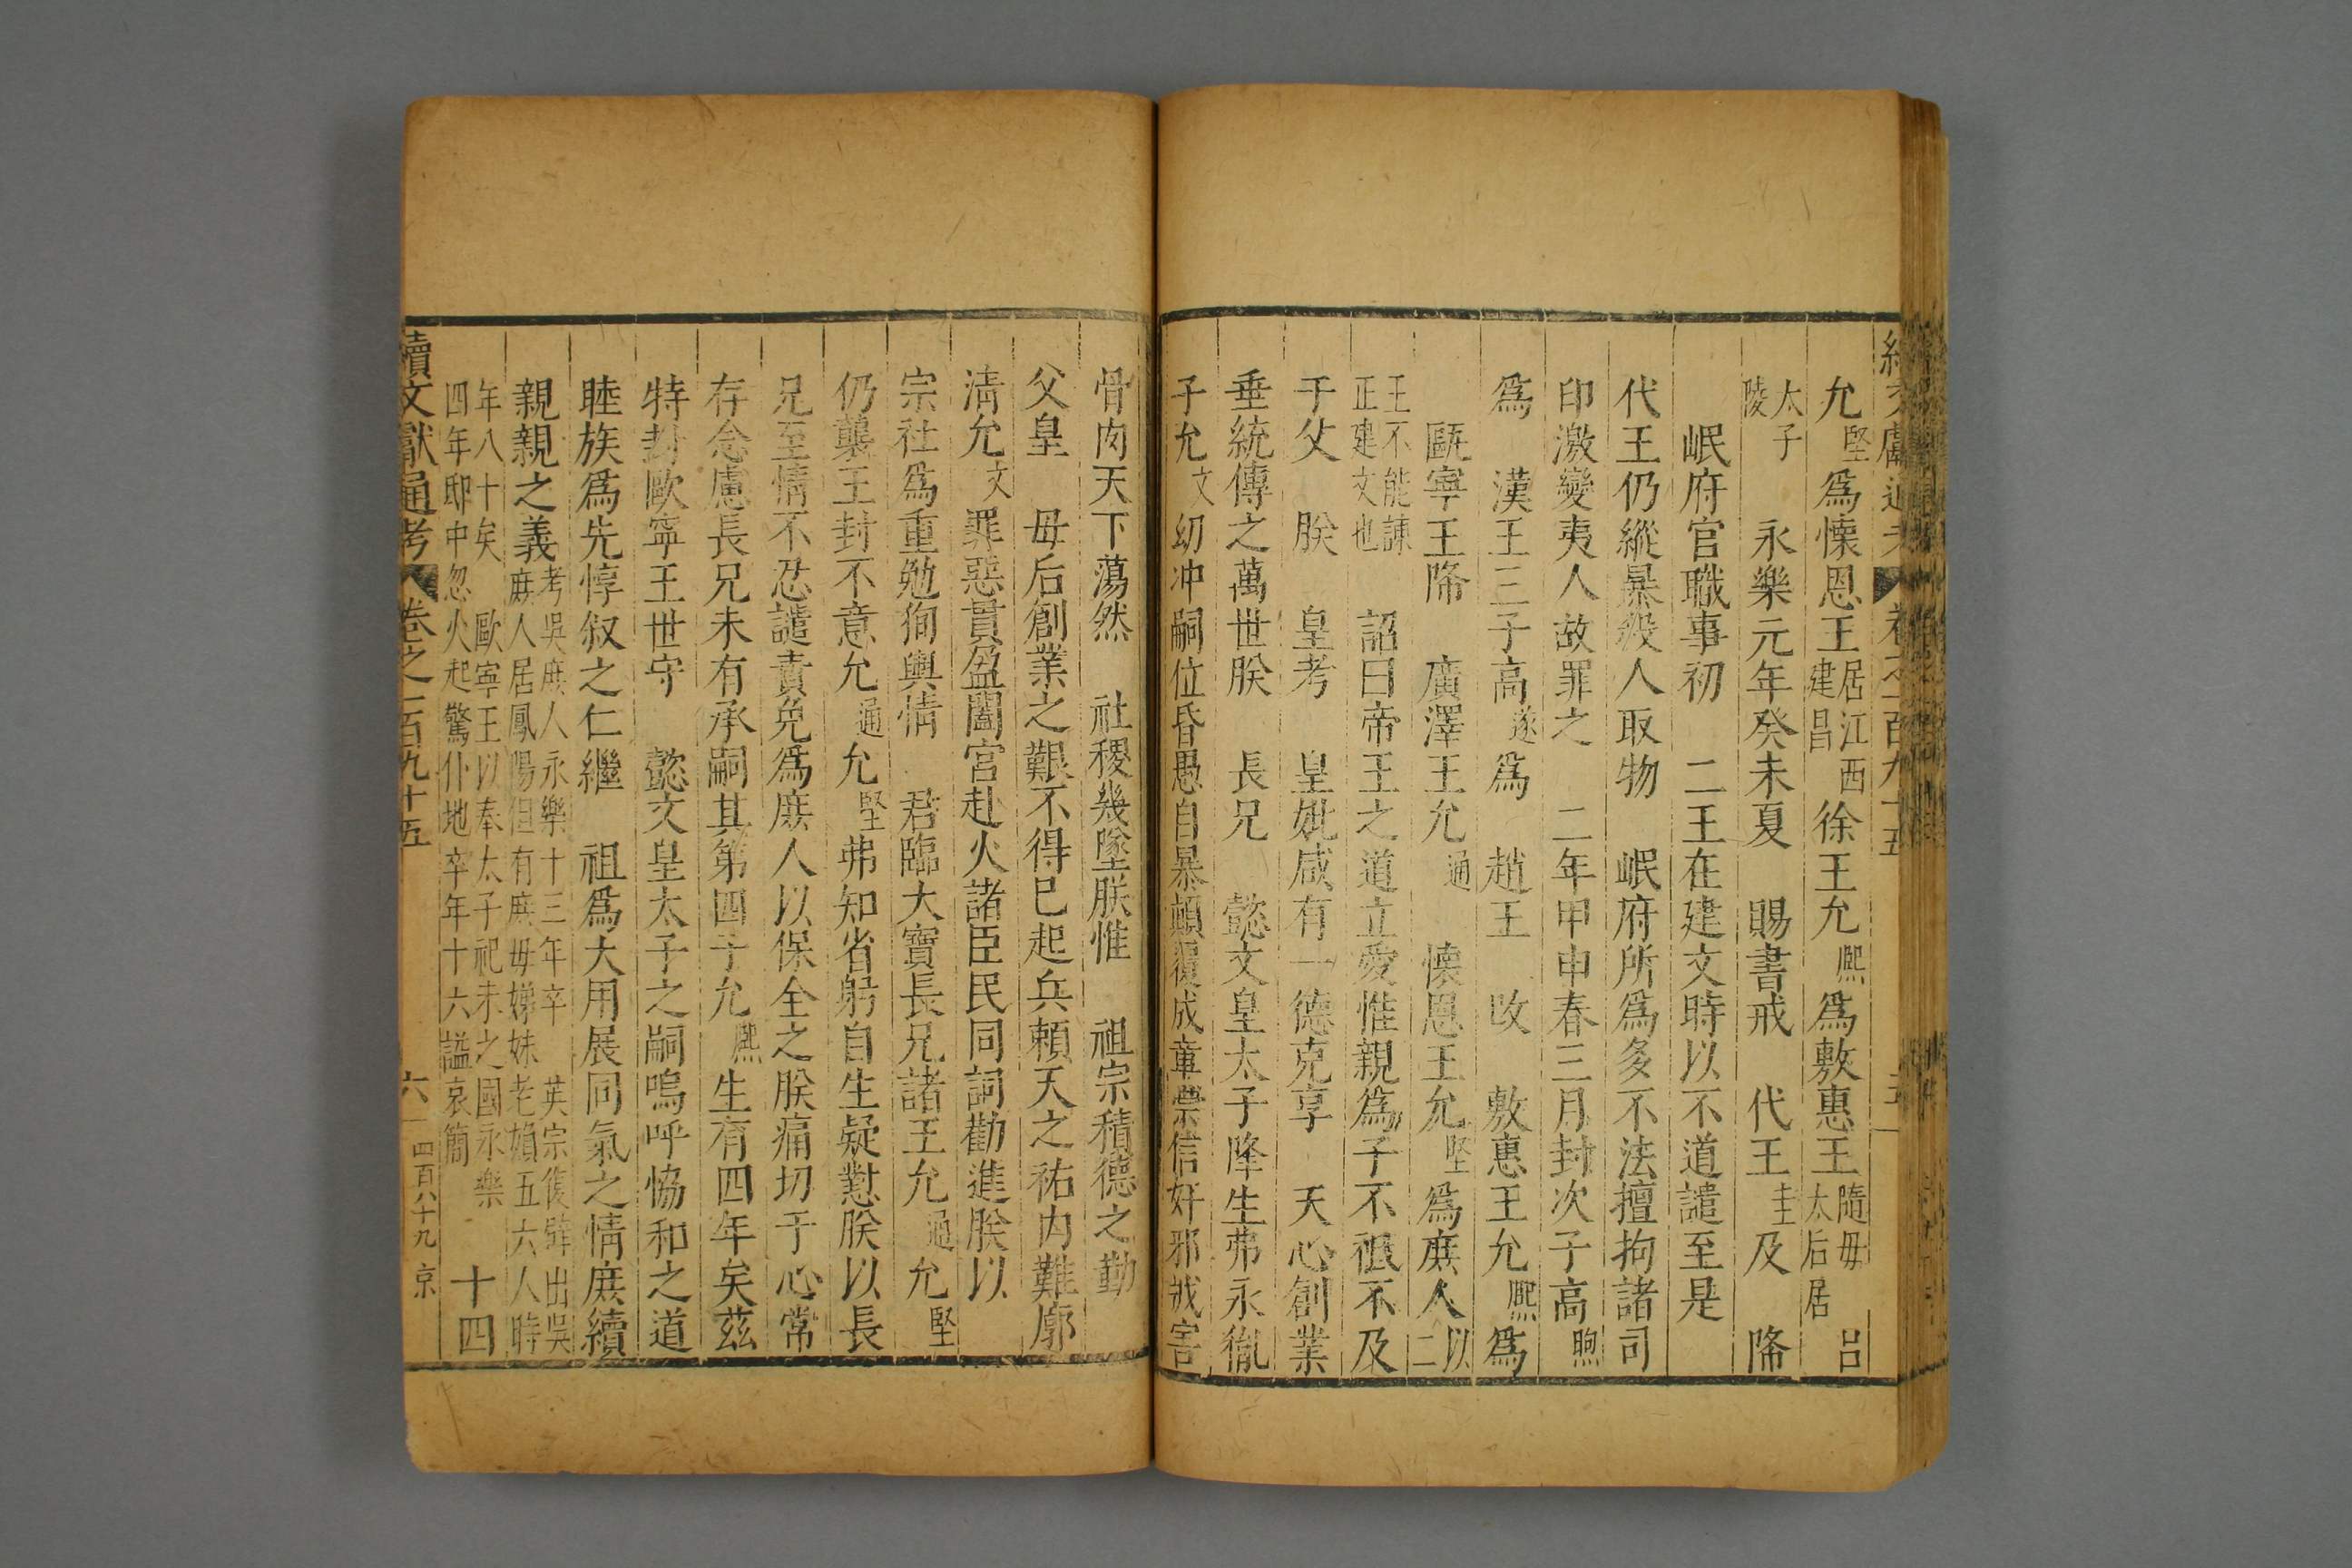 允堅爲懷恩王居江西建昌徐王允熈爲敷惠王隨母呂太后居
太子陵永樂元年癸未夏賜書戒代王圭及降
岷府官職事初二王在建文時以不道譴至是
代王仍縱暴殺人取物岷府所爲多不法擅拘諸司
印激變夷人故罪之二年甲申春三月封次子高煦
爲漢王三子高遂爲趙王改敷惠王允熈爲
甌寧王降廣澤王允通懷恩王允堅爲庶人以二
王不能諫正建文也詔曰帝王之道立愛惟親爲子不祗不及
于父朕皇考皇妣咸有一德克享天心創業
垂統傳之萬世朕長兄懿文皇太子降生弗永胤
子允文幼冲嗣位昏愚自暴顛覆成章崇信奸邪戕害
骨肉天下蕩然社稷幾墜朕惟祖宗積德之勤
父皇母后創業之艱不得已起兵賴天之祐内難廓
清允文罪惡貫盈闔宮赴火諸臣民同詞勸進朕以
宗社爲重勉徇輿情君臨大寶長兄諸王允通允堅
仍襲王封不意允通允堅弗知省躬自生疑懟朕以長
兄至情不忍譴責免爲庶人以保全之朕痛切于心常
存念慮長兄未有承嗣其第四子允熈生有四年矣茲
特封歐寧王世守懿文皇太子之嗣嗚呼恊和之道
睦族爲先惇叙之仁繼祖爲大用展同氣之情庶續
親親之義考吳庶人永樂十三年卒英宗復辟出吳庶人居鳳陽但有庶母娣妹老嬪五六人時
年八十矣歐寧王以奉太子祀未之國永樂四年邸中忽火起驚仆地卒年十六謚哀簡十四
續文獻通考卷之一百九十五六四百八十九京